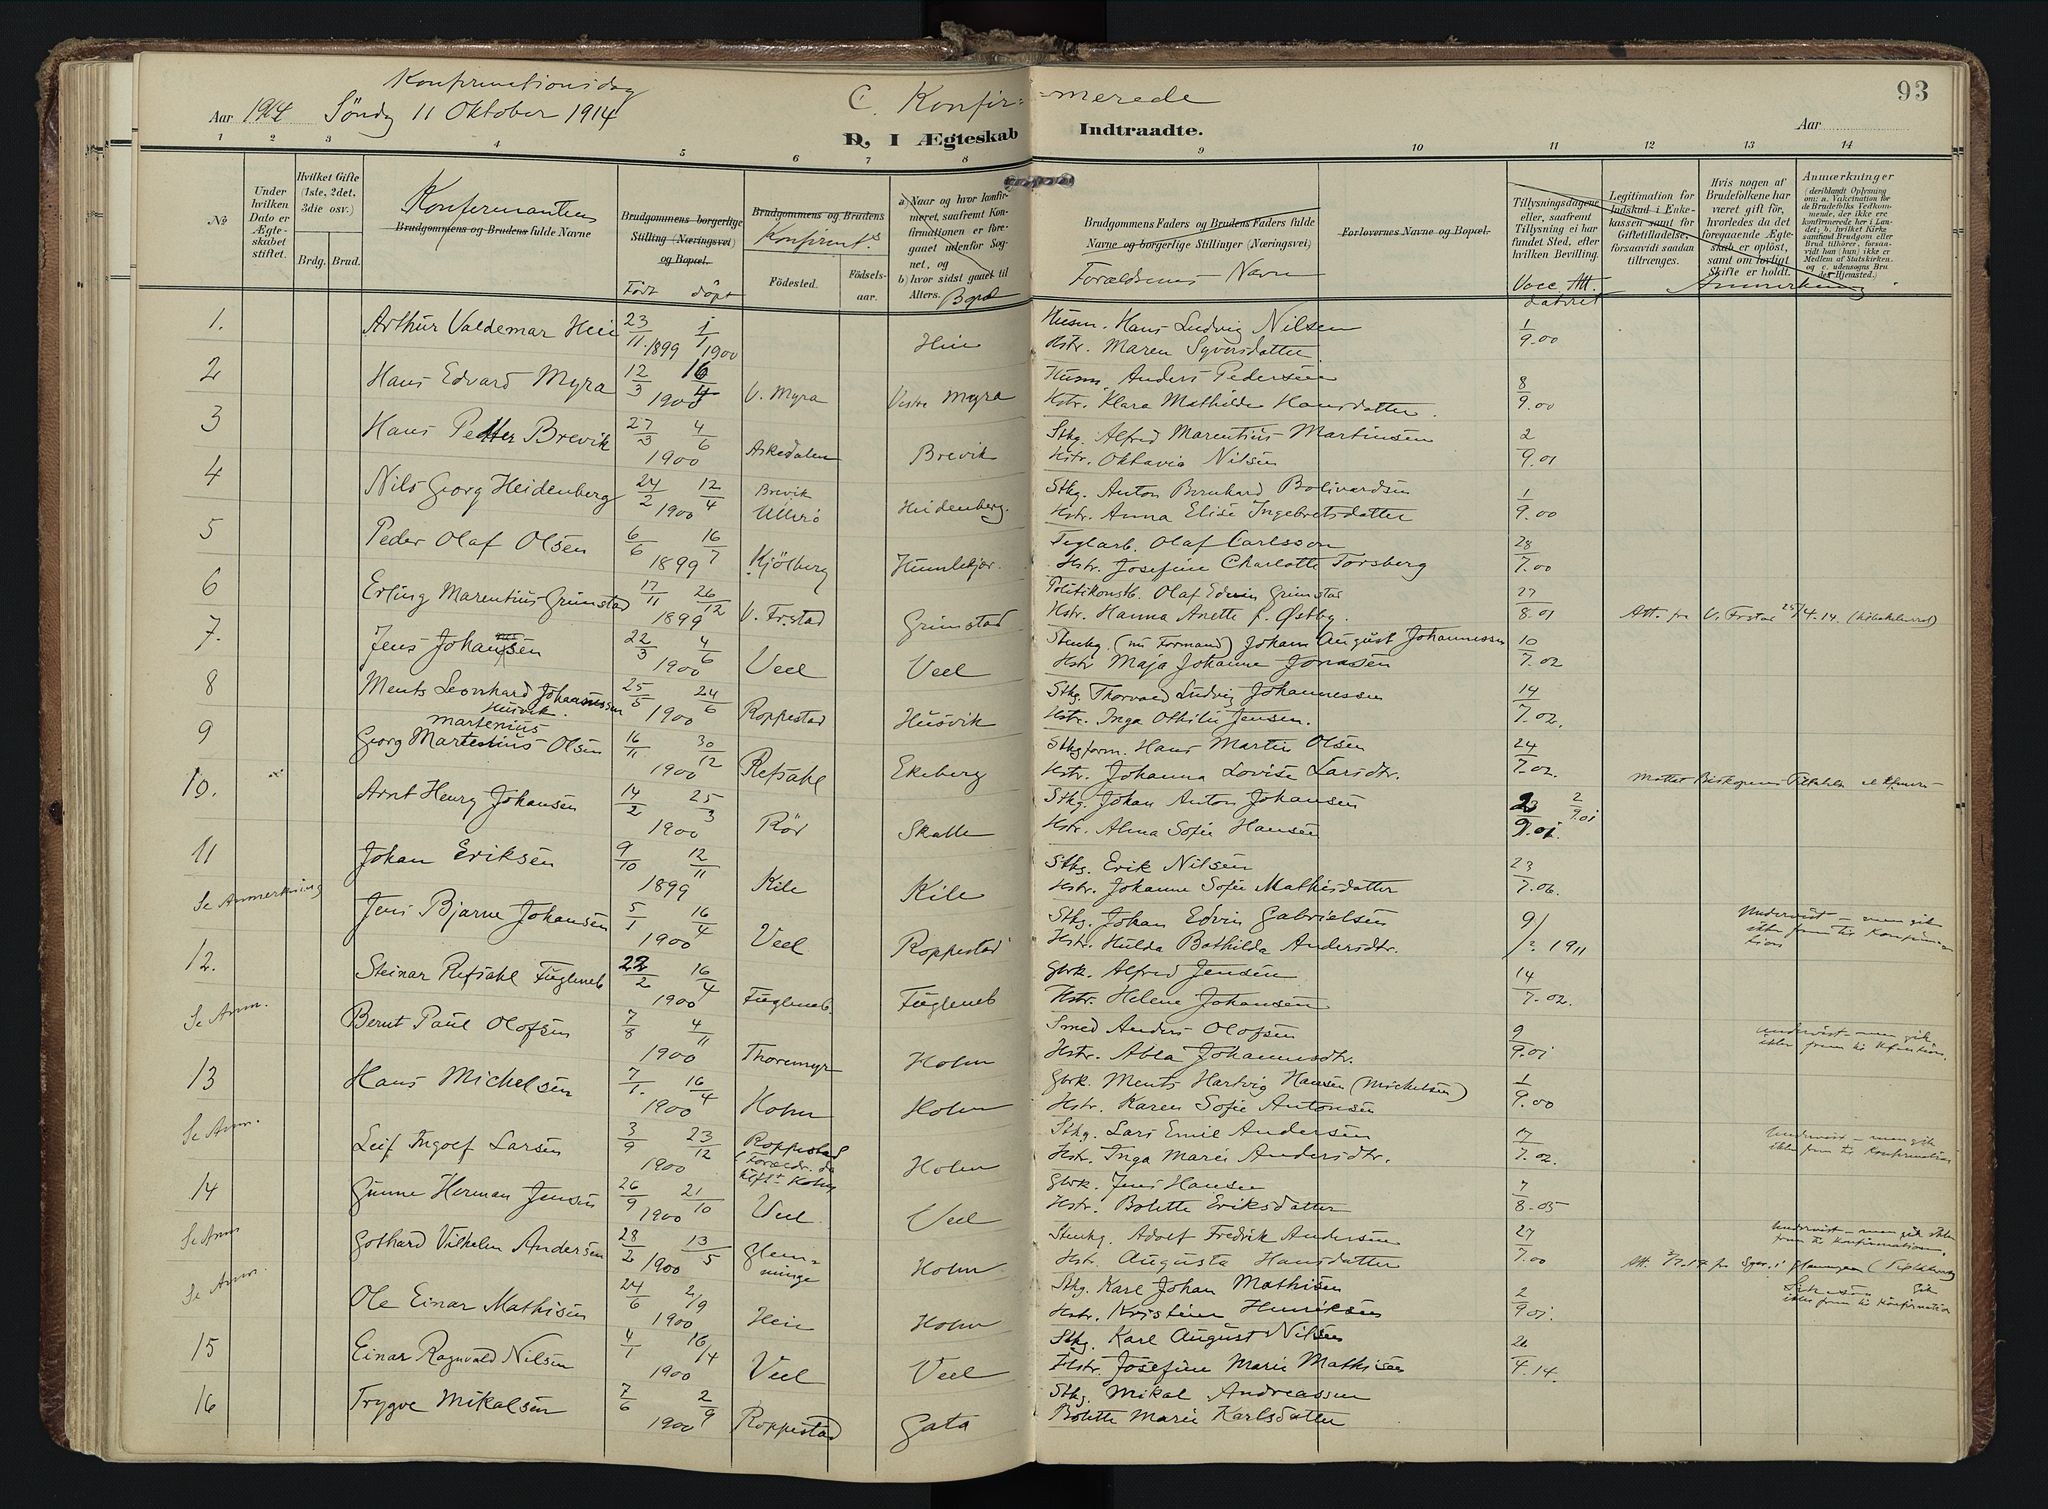 Konfirmationsdag
C. Konfir=
=merede
93
Aar 1914 Sönd 11 Oktober 1914
D, I Ægteskab
Indtraadte.
Aar
1 2 3 4 5 6 7 8 9 10 11 12 13 14
№
Under hvilken Dato er Ægteskabet stiftet.
Hvilket Gifte (1ste, 2det, 3die osv.)
Brdg. Brud.
Konfirmantens
Brudgommens og Brudens fulde Navne
Brudgommens borgerlige Stilling (Næringsvei) og Bopæl.
Født döpt
Brudgommens og Brudens
Konfirmts
Födested. Födselsaar.
a) Naar og hvor konfirmeret, saafremt Konfirmationen er foregaaet udenfor Sognet, og
b) hvor sidst gaaet til Alters. Bopæl
Brudgommens Faders og Brudens Faders fulde Navne og borgerlige Stillinger (Næringsvei)
Forældrenes Navn
Forlovernes Navne og Bopæl.
Tillysningsdagene eller, saafremt Tillysning ei har fundet Sted, efter hvilken Bevilling.
Vacc. Att. datret
Legitimation for Indskud i Enkekassen samt for Giftetilladelse, forsaavidt saadan tiltrænges.
Hvis nogen af Brudefolkene har været gift før, hvorledes da det foregaaende Ægteskab er oplöst, samt om lovligt Skifte er holdt.
Anmærkninger (deriblandt Oplysning om: a. Vakcination for de Brudefolks Vedkommende, der ikke ere konfirmerede her i Landet; b. hvilket Kirkesamfund Brudgom eller Brud tilhörer, forsaavidt han (hun) ikke er Medlem af Statskirken. og c. udensogns Brudes Hjemsted.)
Anmerkning
1. Arthur Valdemar Heie 23/11 1899 1/1 1900 Heie Husm. Hans Ludvig Nilsen 1/9.00
Hstr. Maren Syversdatter
2 Hans Edvard Myra 12/3 16/4 1900 V. Myra Vestre Myra Husm. Anders Pedersen 8/9.00
Hstr. Klara Mathilde Hansdatter.
3 Hans Petter Brevik 27/3 4/6 1900 Askedalen Brevik Sthg. Alfred Marentius Martinsen 2/9.01
Hstr. Oktavia Nilsen
4 Nils Georg Heidenberg 24/2 12/4 1900 Brevik Ullerö Heidenberg. Sthg. Anton Bernhard Bolivardsen 1/9.00
Hstr. Anna Elise Ingebretsdatter
5 Peder Olaf Olsen 6/6 16/7 1899 Kjölberg Humlekjær. Teglarb. Olaf Carlsson 28/7.00
Hstr. Josefine Charlotte Torsberg
6 Erling Marentius Grimstad 17/11 26/12 1899 V. Fr.stad Grimstad Politikonstb. Olaf Edvin Grimstad 27/8.01
Hstr. Hanna Anette f. Østby. Att. fra V. Frstad 25/4.14.
7. Jens Johansen 22/3 4/6 1900 Veel Veel Stenhg. (nu Formand) Johan August Johannessen 10/7.02
Hstr Maja Johanne Jonassen
8 Ments Leonhard Johannessen Husvik. 25/5 24/6 1900 Roppestad Husvik Sthg Thorvald Ludvig Johannessen 14/7.02.
Hstr. Inga Othilie Jensen.
9 Georg Martenius Olsen 16/11 30/12 1900 Refsahl Ekeberg Sthgform. Hans Martin Olsen 24/7.02.
Hstr. Johanna Lovise Larsdtr.
10. Arnt Henry Johansen 14/2 25/3 1900 Rör Skatle Sthg. Johan Anton Johansen 2/9.01
Hstr. Alma Sofie Hansen
11 Johan Eriksen 9/10 12/11 1899 Kile Kile Sthg. Erik Nilsen 23/7.06.
Hstr. Johanne Sofie Mathisdatter
Se Anmerkning Jens Bjarne Johansen 5/1 16/4 1900 Veel Roppestad Sthg. Johan Edvin Gabrielsen 9/? 1911 Undervist – men gik ikke frem til Konfirmation
Hstr. Hulda Bathilda Andersdtr.
12. Steinar Refsahl Fugleneb 22/2 16/4 1900 Fugleneb. Fugleneb Gbrk. Alfred Jensen 14/7.02.
Hstr. Helene Johansen
Se Anm. Bernt Paul Olofsen 7/8 4/11 1900 Thoremyr Holm Smed Anders Olofsen 9/9.01 Undervist – men gik ikke frem til Kfmtion.
Hstr. Abla Johannesdtr.
13 Hans Michelsen 7/1. 16/4 1900 Holm Holm Gbrk. Ments Hartvig Hansen (Michelsen) 1/9.00
Hstr. Karen Sofie Antonsen
Se Anm. Leif Ingolf Larsen 3/9 23/12 1900 Roppestad Holm Sthg. Lars Emil Andersen 17/7.02. Undervist – men gik ikke frem til Konfirmation
Hstr. Inga Marie Andersdtr.
14 Gunne Herman Jensen 26/9 21/10 1900 Veel. Veel Gbrk. Jens Hansen 7/8.05
Hstr. Bolette Eriksdatter
Se Anm Gothard Vilhelm Andersen 28/2 13/5 1900 Glemminge Holm Stenhg. Adolf Fredrik Andersen 27/7.00 Undervist – men gik ikke frem til Konfirmationen.
Hstr. Augusta Hansdatter
Se Anm. Ole Einar Mathisen 24/6 2/9 1900 Heie Holm Sthg. Karl Johan Mathisen 2/9.01. gik ikke frem til Konfirmation
Hstr. Kristine Henriksen
15 Einar Ragnvald Nilsen 4/1 16/4 1900 Veel Veel Sthg. Karl August Nilsen 26/4.14.
Hstr. Josefine Marie Mathisen
16 Trygve Mikalsen 7/6 2/9 1900 Roppestad Gata Sthg. Mikal Andreassen
Bolette Marie Karlsdatter